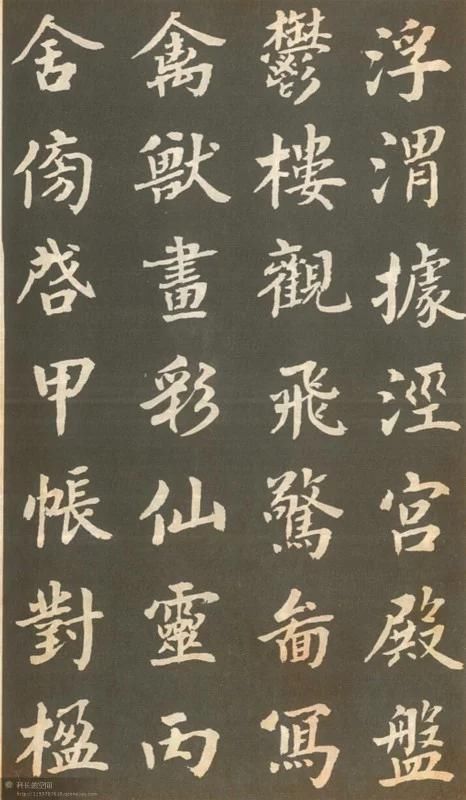 浮渭據涇宮殿盤
鬱樓觀飛驚啚寫
禽獸畫彩仙靈丙
舍傍啓甲帳對楹
科长的空间